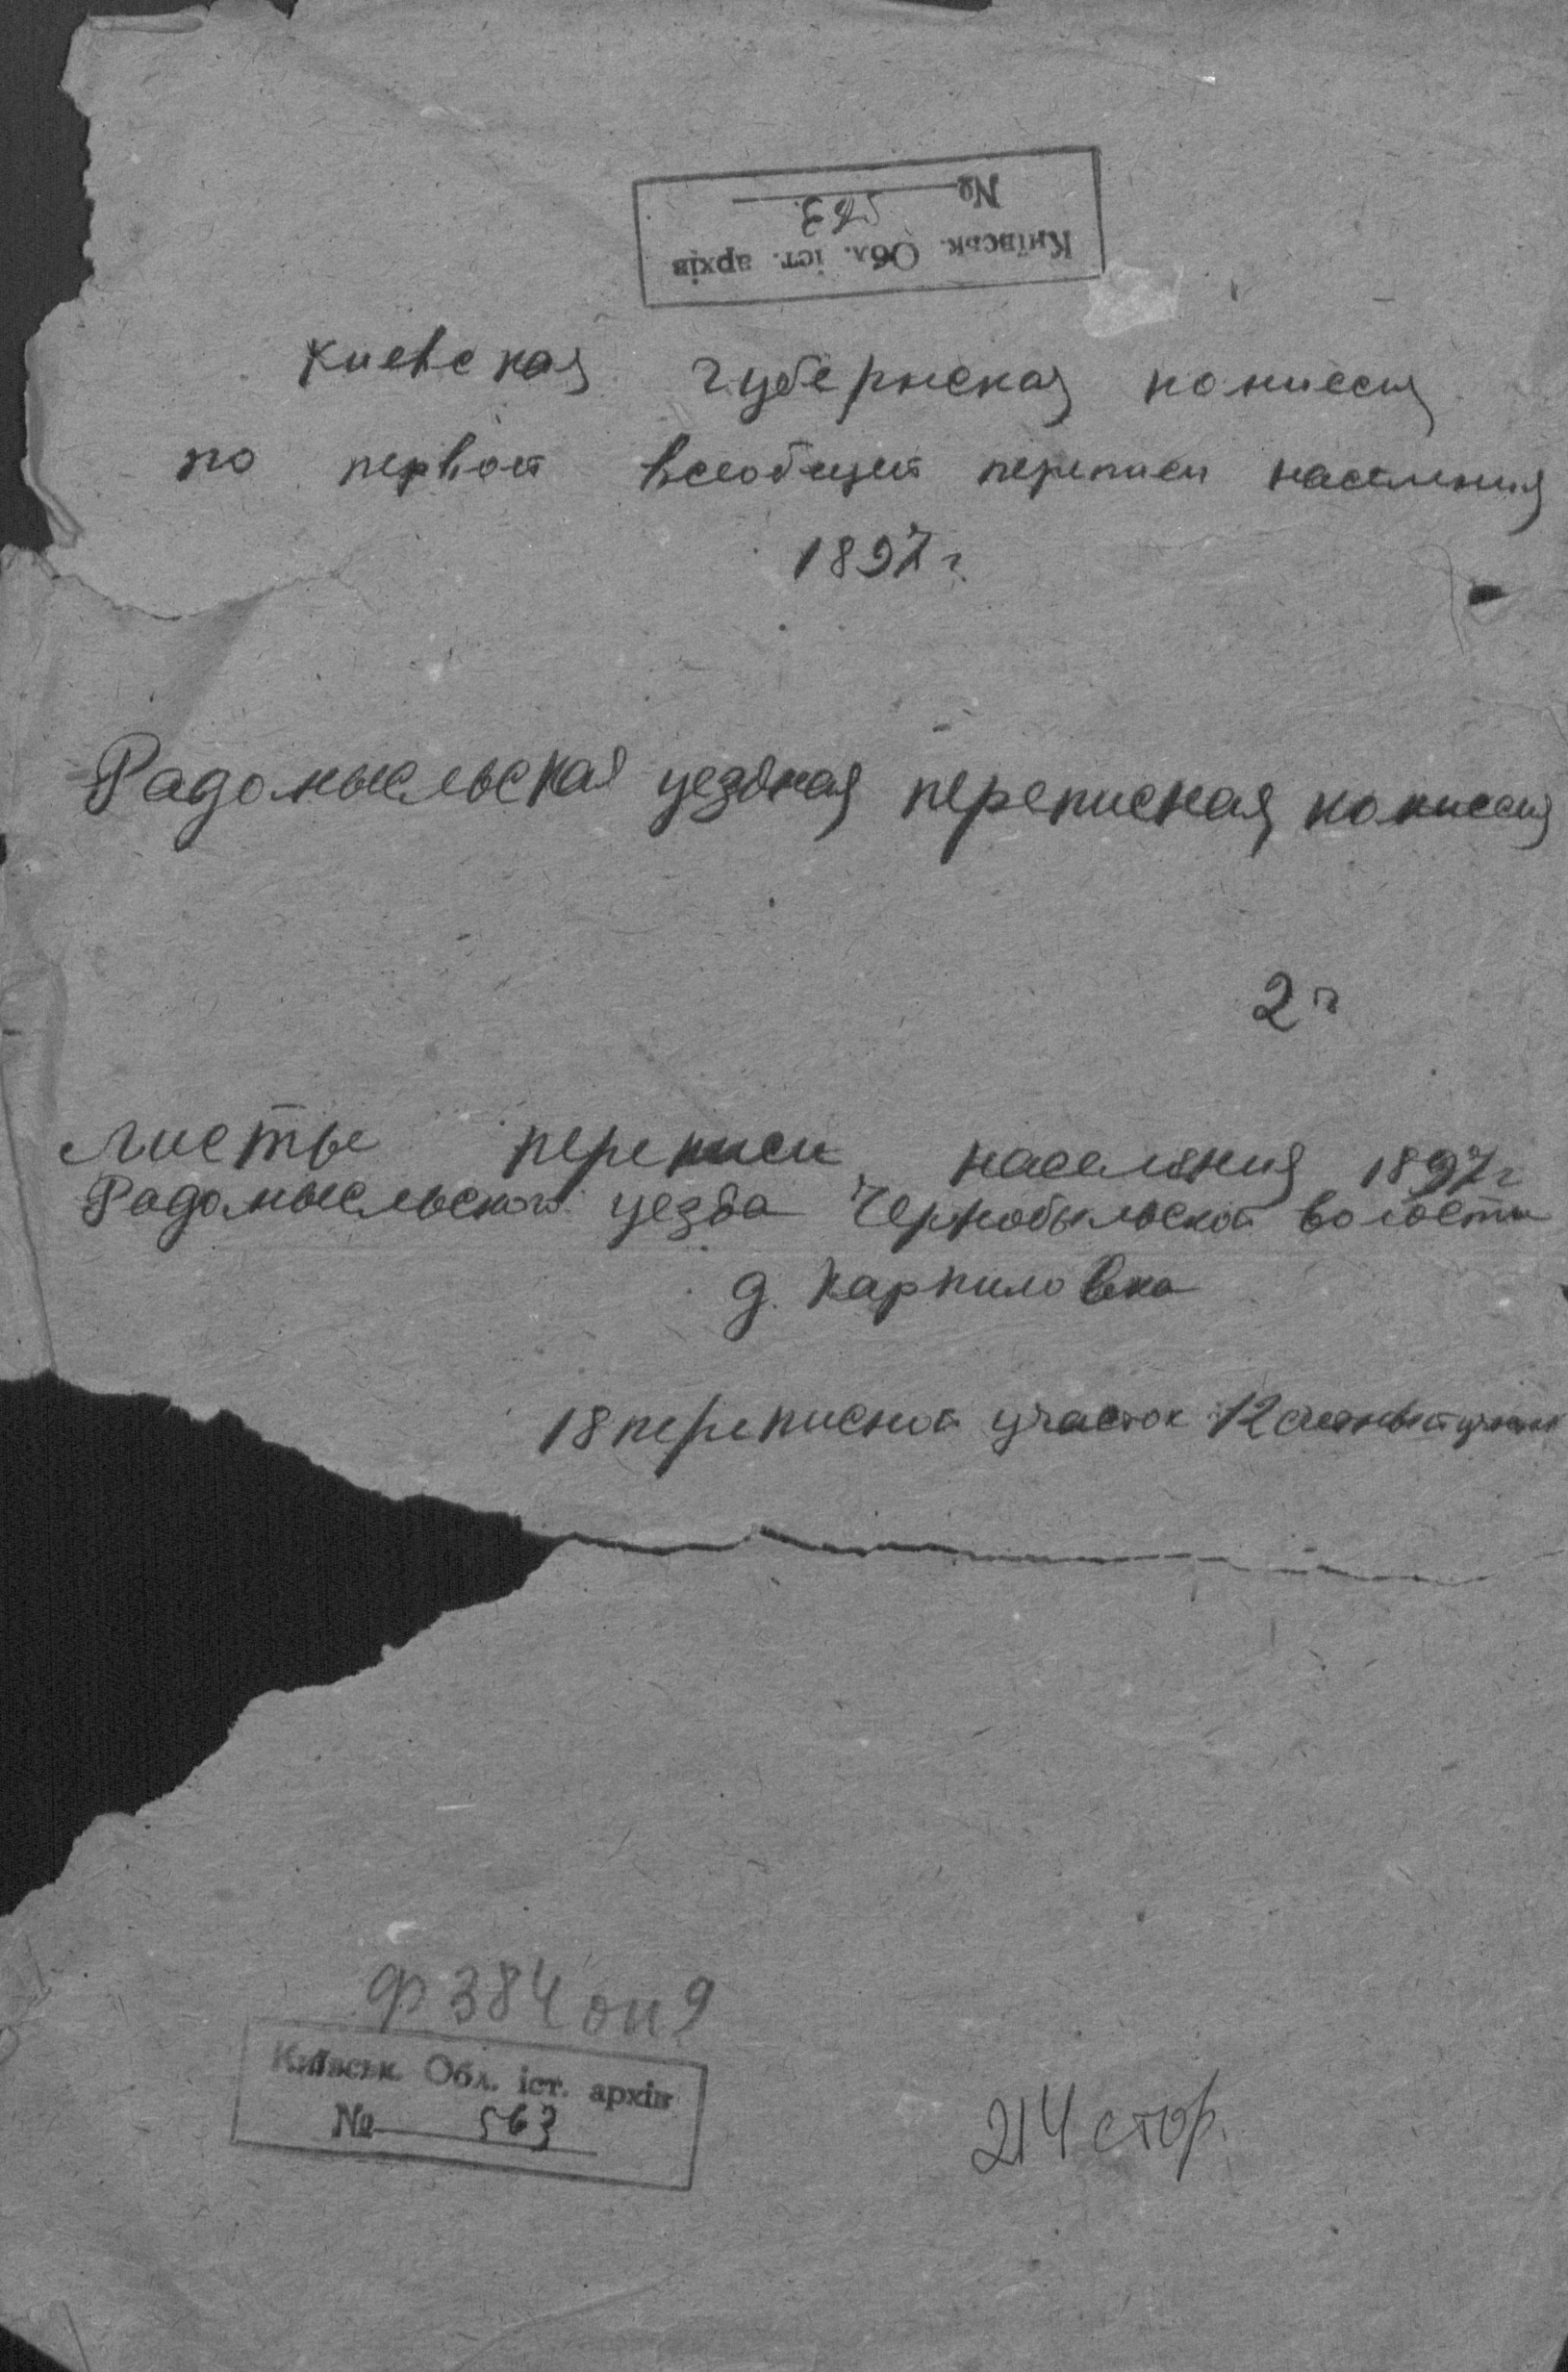 Київськ. Обл. іст. архів
№ 563
Киевская губернская комиссия
по первой всеобщей переписи населения
1897 г
Радомысльская уездная переписная комиссия
2 г
Листы переписи населения 1897 г
Радомысльского уезда Чернобыльской волости
д. Карпиловка
18 переписной участок 12 счетный участок
Ф 384 оп 9
Київськ. Обл. іст. архів
№ 563
214 стор.